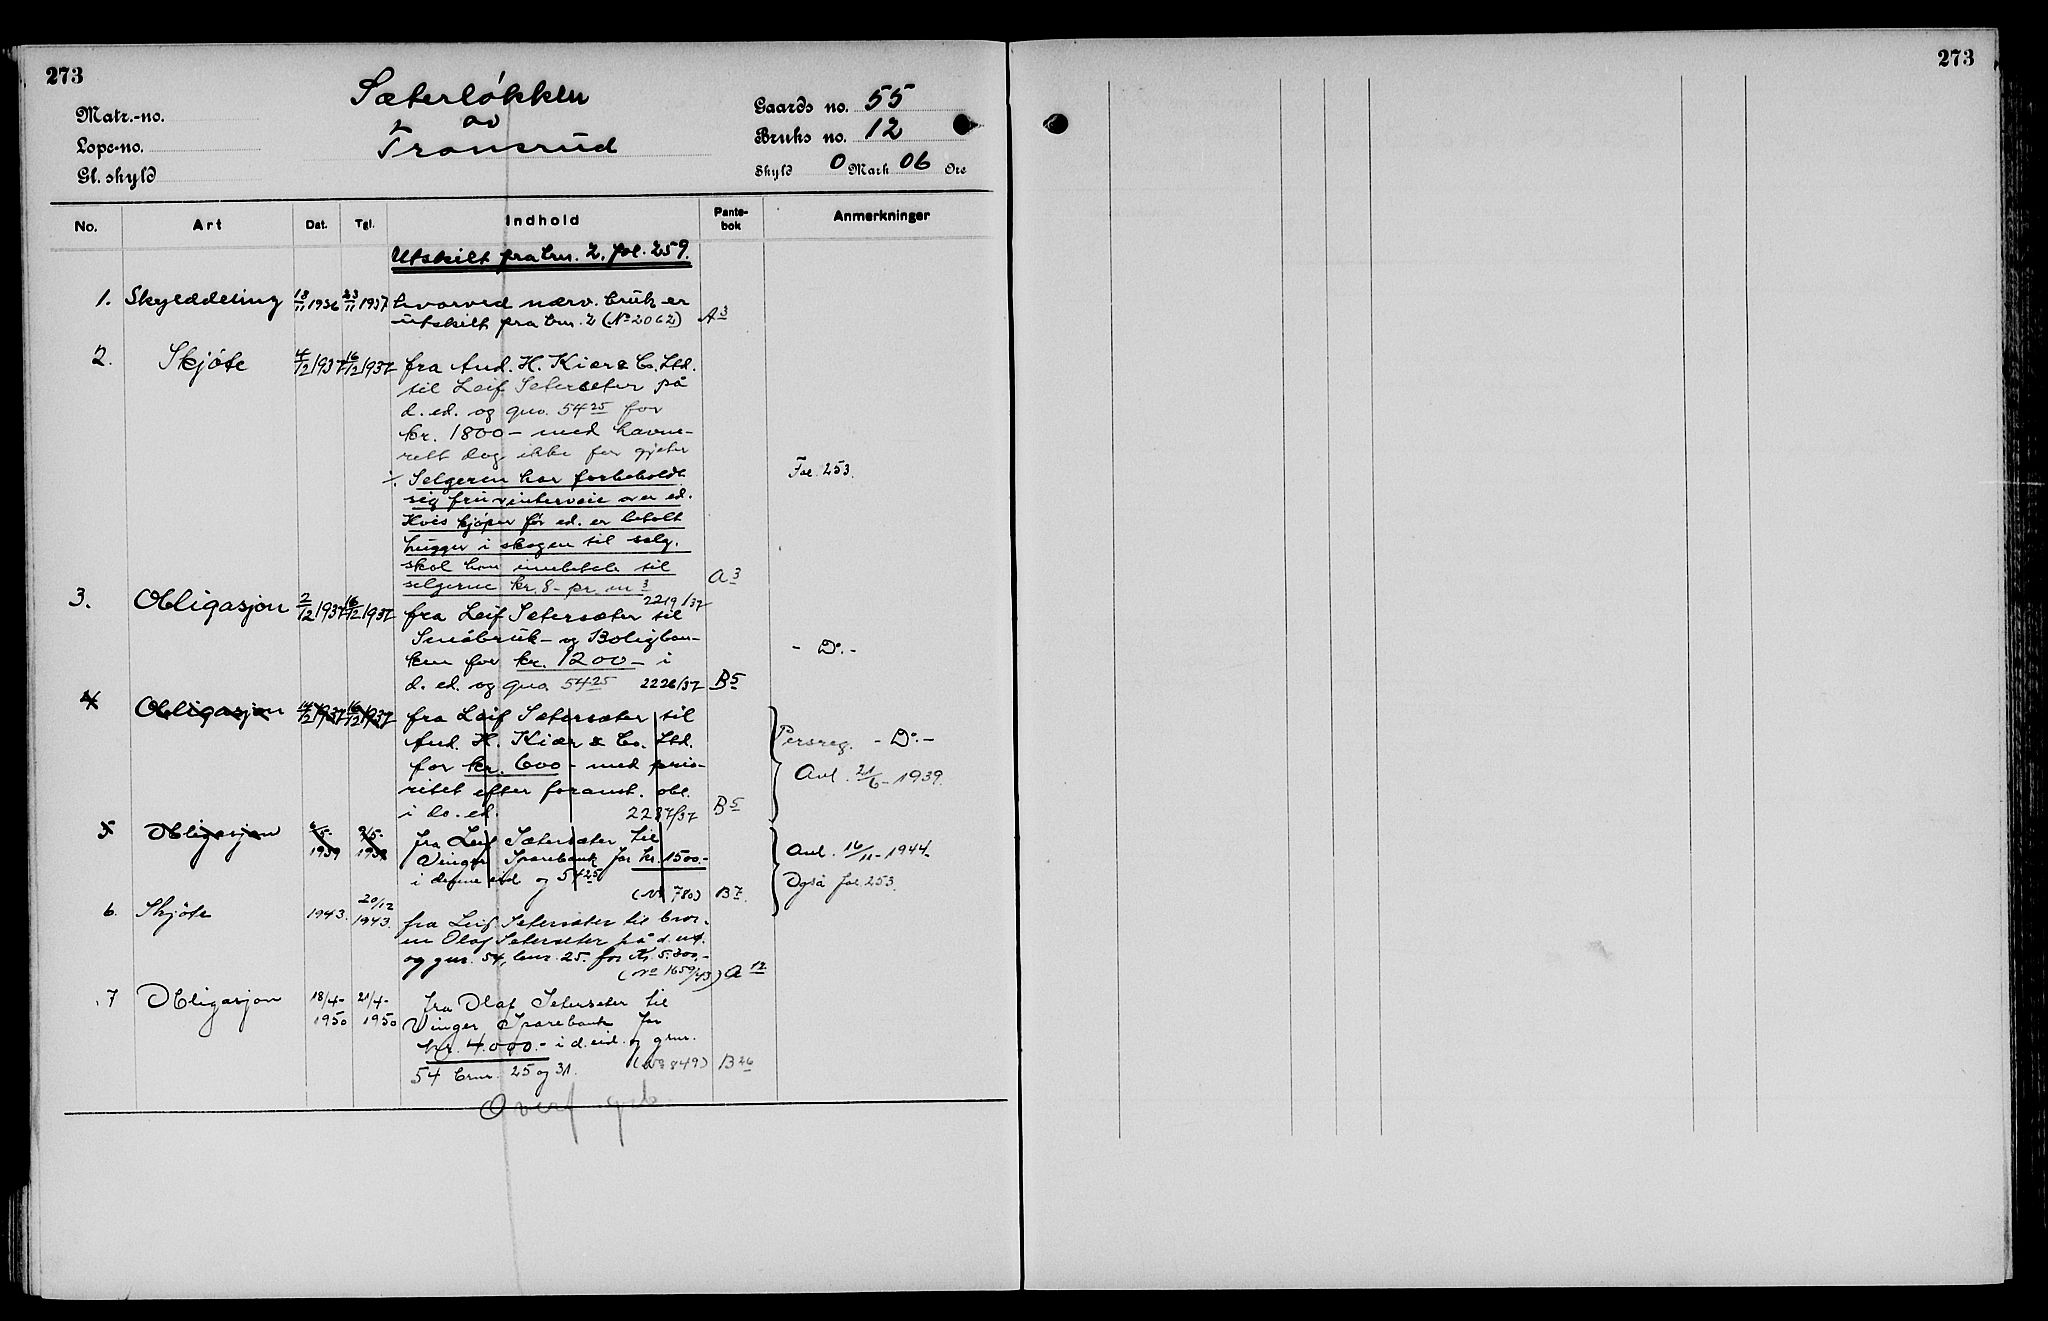 273
273
Sæterløkken
av
Tronsrud
Matr.-no.
Lope-no.
Gl. skyld
Gaards no. 55
Bruks no. 12
Skyld 0 Mark 06 Øre
No. Art Dat. Tgl. Indhold Pante-bok Anmerkninger
Utskilt fra bnr. 2. fol. 259.
1. Skylddeling 18/11 1936 23/11 1937 hvorved nærv. bruk er
utskilt fra bnr. 2 (No 2062) A 3
2. Skjøte 4/12 1937 16/12 1937 fra And. H. Kiær & Co. Ltd.
til Leif Setersæter på
d. ed. og gno. 54 25 for
kr. 1800 – med havne-
rett dog ikke for gjeter
÷ Selgeren har forbeholdt Fol. 253.
sig fri vinterveie over ed.
Hvis kjøper før ed. er betalt
hugger i skogen til salg.
skal han innbetale til
selgerne kr. 8 – pr. m 3 A 3
2219/37
3. Obligasjon 2/12 1937 16/12 1937 fra Leif Setersæter til
Småbruk – og Boligban-
ken for kr. 1200 – i - Do. -
d. ed. og gno. 54 25 2226/37 B 5
4 Obligasjon 14/12 1937 16/12 1937 fra Leif Setersæter til
And. H. Kiær & Co. Ltd. Persreg. - Do. -
for kr. 600 – med prio-
ritet efter foranst. obl. Avl. 21/6 - 1939.
i do. ed. 2227/37 B 5
5 Obligasjon 6/5- 1939 9/5- 1939 fra Leif Sætersæter til
Vinger Sparebank for kr. 1500.- Avl. 16/11 - 1944.
i denne eid og 54 25 Også fol. 253.
(No 780) B 7.
6. Skjøte 1943. 20/12 1943. fra Leif Setersæter til bror-
en Olaf Setersæter på d. eid.
og gnr. 54, bnr. 25. for Kr 5.300,-
(No 1659/43) A 12
7 Obligasjon 18/4- 1950 21/4- 1950 fra Olaf Seterseter til
Vinger Sparebank for
kr. 4.000.- i d. eid. og gnr.
54 bnr. 25 og 31. (No 849) B 26
Overf.